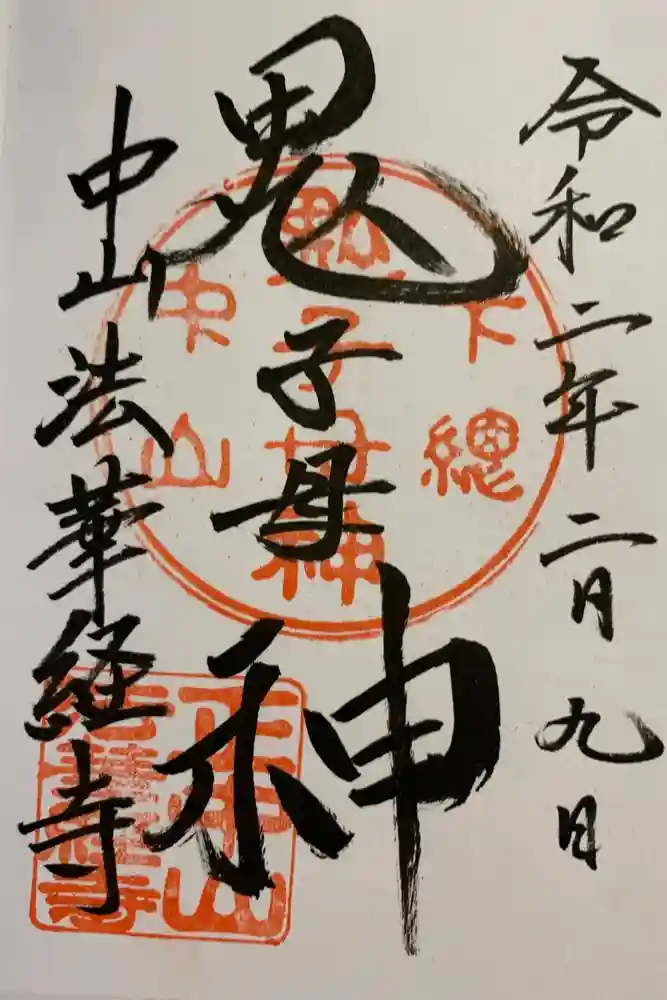 令和二年二月九日
鬼子母神
中山法華経寺
下総
鬼子母神
中山
正中山
法華経寺